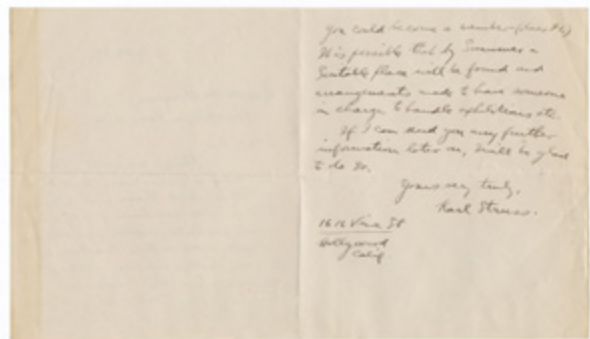 you could become a member (dues $6)
It is possible that by Summer a
suitable place will be found and
arrangements made to have someone
in charge to handle exhibitions etc.
If I can send you any further
information later on, I will be glad
to do so.
Yours very truly,
Karl Struss.
1616 Vine St
Hollywood
Calif.